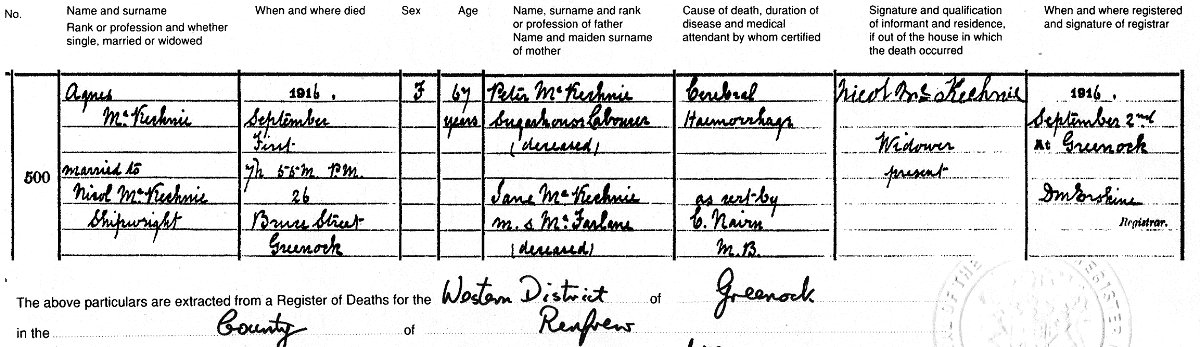 No.
Name and surname
Rank or profession and whether
single, married or widowed
When and where died
Sex
Age
Name, surname and rank
or profession of father
Name and maiden surname
of mother
Cause of death, duration of
disease and medical
attendant by whom certified
Signature and qualification
of informant and residence,
if out of the house in which
the death occurred
When and where registered
and signature of registrar
500
Agnes
McKechnie
married to
Nicol McKechnie
Shipwright
1916.
September
First
7h 55m P.M.
26
Bruce Street
Greenock
F
67
years
Peter McKechnie
Sugarhouse Labourer
(deceased)
Jane McKechnie
m.s McFarlane
(deceased)
Cerebral
Haemorrhage
as cert by
C. Nairn
M.B.
Nicol McKechnie
Widower
present
1916.
September 2nd
At Greenock
DmErskine
Registrar.
The above particulars are extracted from a Register of Deaths for the Western District of Greenock
in the County of Renfrew